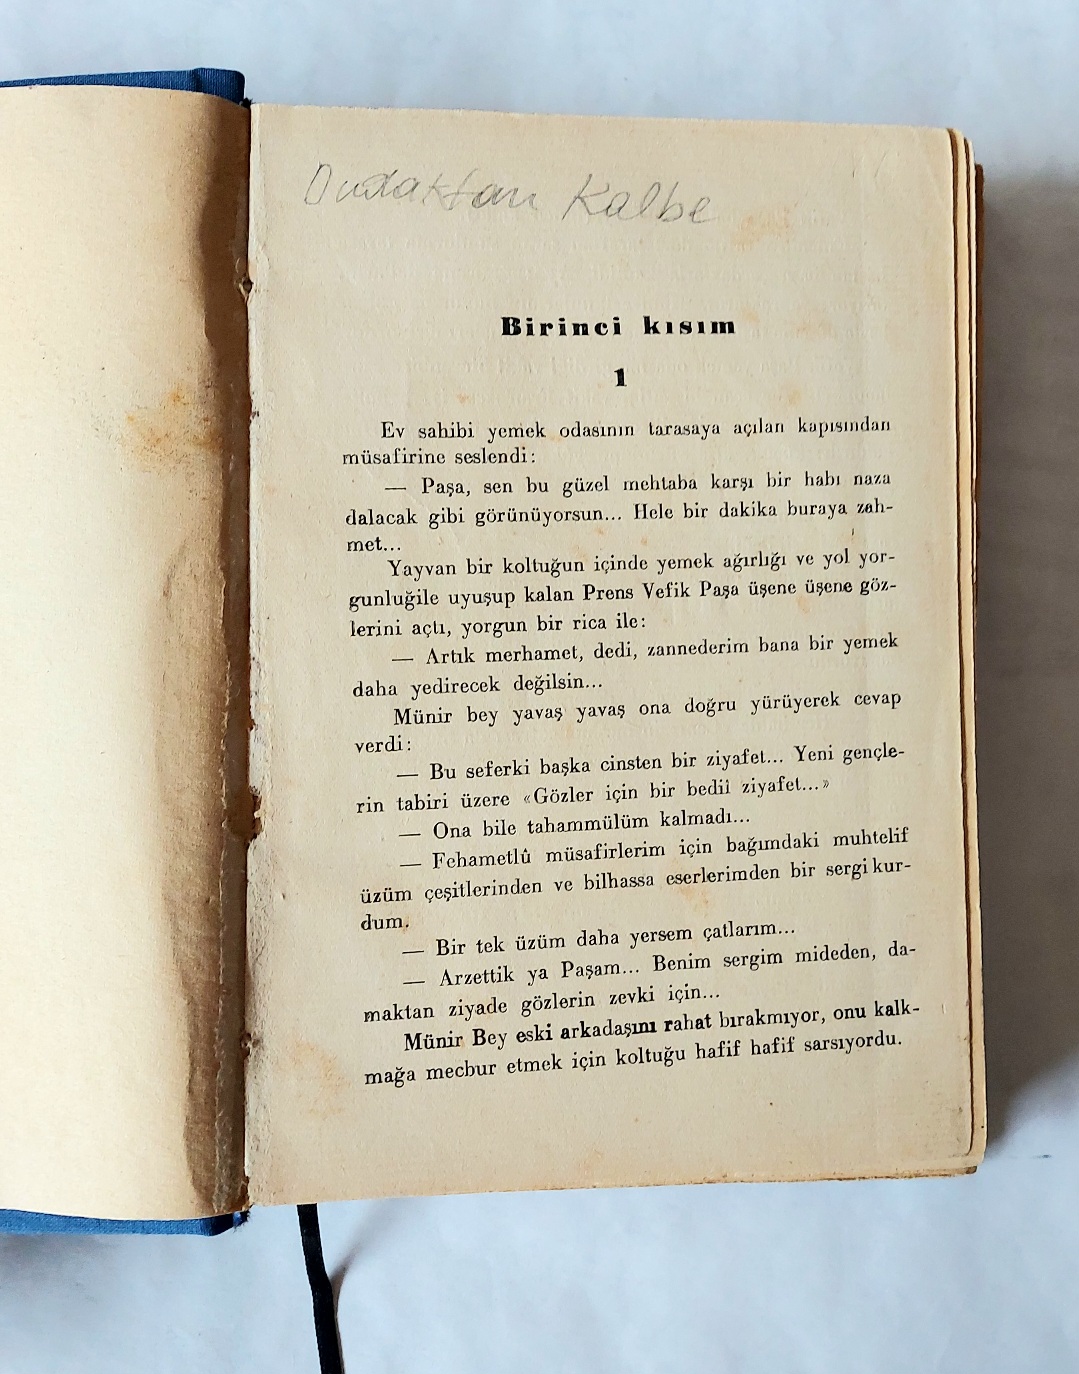 Dudaktan Kalbe
Birinci kısım
1
Ev sahibi yemek odasının tarasaya açılan kapısından
müsafirine seslendi:
— Paşa, sen bu güzel mehtaba karşı bir habı naza
dalacak gibi görünüyorsun... Hele bir dakika buraya zah-
met...
Yayvan bir koltuğun içinde yemek ağırlığı ve yol yor-
gunluğile uyuşup kalan Prens Vefik Paşa üşene üşene göz-
lerini açtı, yorgun bir rica ile:
— Artık merhamet, dedi, zannederim bana bir yemek
daha yedirecek değilsin...
Münir bey yavaş yavaş ona doğru yürüyerek cevap
verdi:
— Bu seferki başka cinsten bir ziyafet... Yeni gençle-
rin tabiri üzere «Gözler için bir bedii ziyafet...»
— Ona bile tahammülüm kalmadı...
— Fehametlû müsafirlerim için bağımdaki muhtelif
üzüm çeşitlerinden ve bilhassa eserlerimden bir sergi kur-
dum.
— Bir tek üzüm daha yersem çatlarım...
— Arzettik ya Paşam... Benim sergim mideden, da-
maktan ziyade gözlerin zevki için...
Münir Bey eski arkadaşını rahat bırakmıyor, onu kalk-
mağa mecbur etmek için koltuğu hafif hafif sarsıyordu.